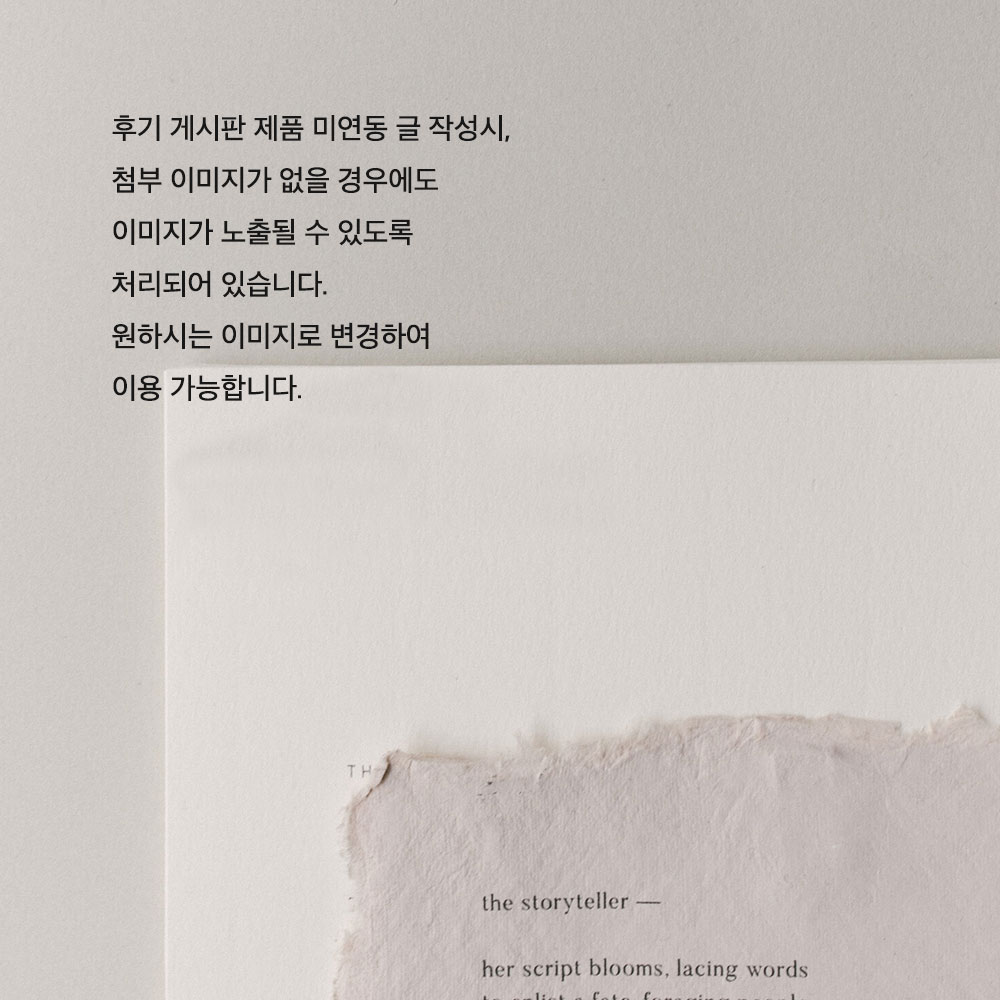 후기 게시판 제품 미연동 글 작성시,
첨부 이미지가 없을 경우에도
이미지가 노출될 수 있도록
처리되어 있습니다.
원하시는 이미지로 변경하여
이용 가능합니다.
TH
the storyteller —
her script blooms, lacing words